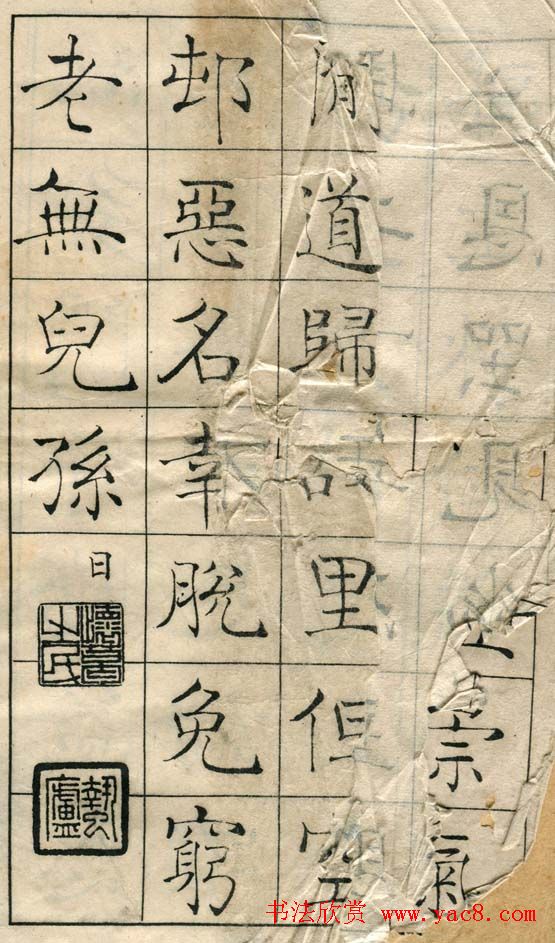 宗氣
間道歸故里但空
邨惡名幸脫免窮
老無兒孫
日
书法欣赏 www.yac8.com